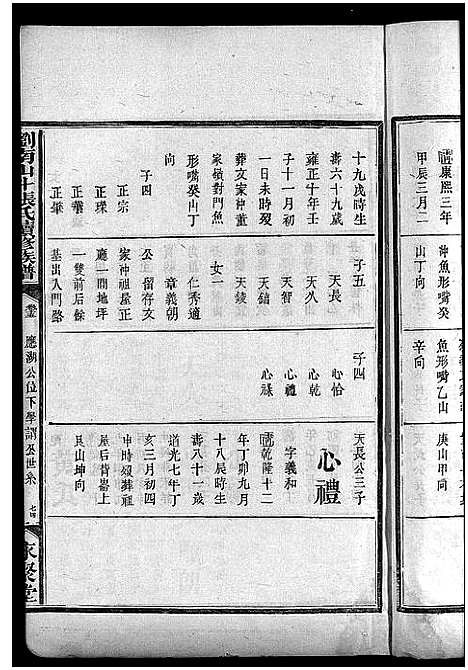 康熙三年
甲辰三月二
沖魚形嘴癸
山丁向
魚形嘴乙山
辛向
庚山甲向
十九戌時生
壽六十九歲
雍正十年壬
子十一月初
一日未時歿
葬文家沖董
家嶺對門魚
形嘴癸山丁
向
子四
正宗
正璨
正華
正畢
子五
天長
天久
天智
天鎬
天錢
女一
仁秀適
章義朝
公留存文
家沖祖屋正
廳一間地坪
一雙前后餘
基出入門路
子四
心恰
心乾
心禮
心祿
天長公三子
心禮
字義和
乾隆十二
年丁卯九月
十八辰時生
壽八十一歲
道光七年丁
亥三月初四
申時歿葬祖
屋后背崙上
艮山坤向
瀏南山斗張氏續修族譜
應湖公位下學謂公世系
七四